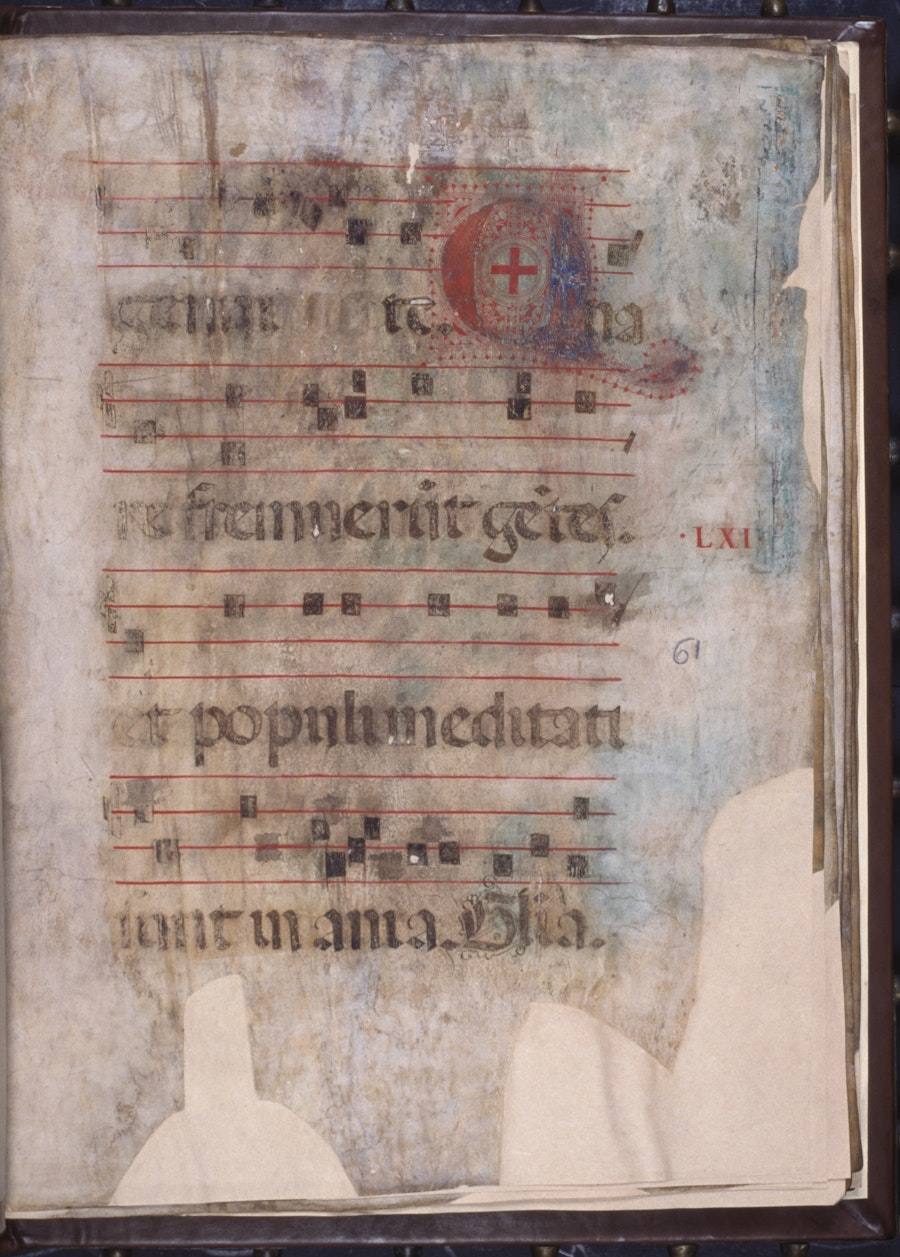 genui te. Qua
re fremuerūt gētes.
·LXI·
61
et populi meditati
sunt inania. Gl̄ia.